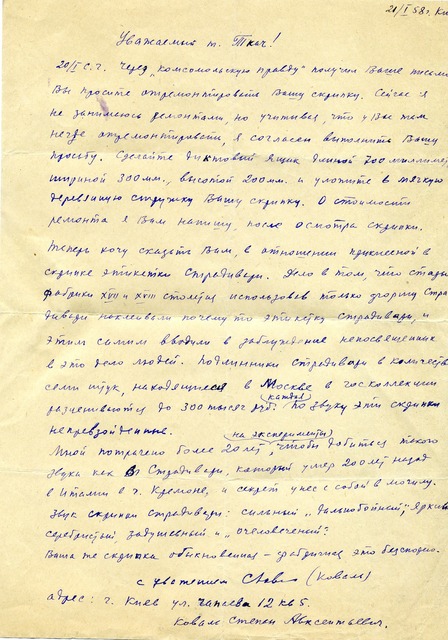 21/I 58г. Ки
Уважаемый т. Ткач!
20/I с.г. через „Комсомольскую правду" получил Ваше письмо
Вы просите отремонтировать Вашу скрипку. Сейчас я
не занимаюсь ремонтами, но учитывая, что у Вас там
негде отремонтировать, я согласен выполнить Вашу
просьбу. Сделайте диктовый ящик длиной 700 миллимет
шириной 300мм., высотой 200мм. и уложите в мягкую
деревянную стружку Вашу скрипку. О стоимости
ремонта я Вам напишу, после осмотра скрипки.
Теперь хочу сказать Вам, в отношении приклеенной в
скрипке этикетки Страдивари. Дело в том, что стары
фабрики XVII и XVIII столетия использовав только форму Стра
дивари наклеивали почему то этикетку Страдивари, и
этим самим вводили в заблуждение непосвященних
в это дело людей. Подлинники Страдивари в количеств
семи штук, находящиеся в Москве в госколлекции
расцениваются до 300 тысяч руб. каждая По звуку эти скрипки
непревзойденные.
Мной потрачено более 20 лет, на эксперименты, чтобы добиться такого
звука как в Страдивари, который умер 200 лет назад
в Италии в г. Кремоне, и секрет унес с собой в могилу.
Звук скрипки Страдивари: сильный „дальнобойный", ярки
серебристый, задушевный и „очеловеченый".
Ваша же скрипка обыкновенная – фабричная это безспорно.
с уважением (Коваль)
адрес: г. Киев ул. Чапаева 12 кв 5.
Коваль Степан Авксентьевич.